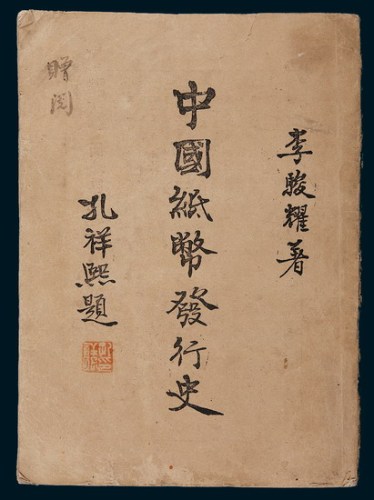 李駿耀著
中國紙幣發行史
孔祥熙題
贈閱